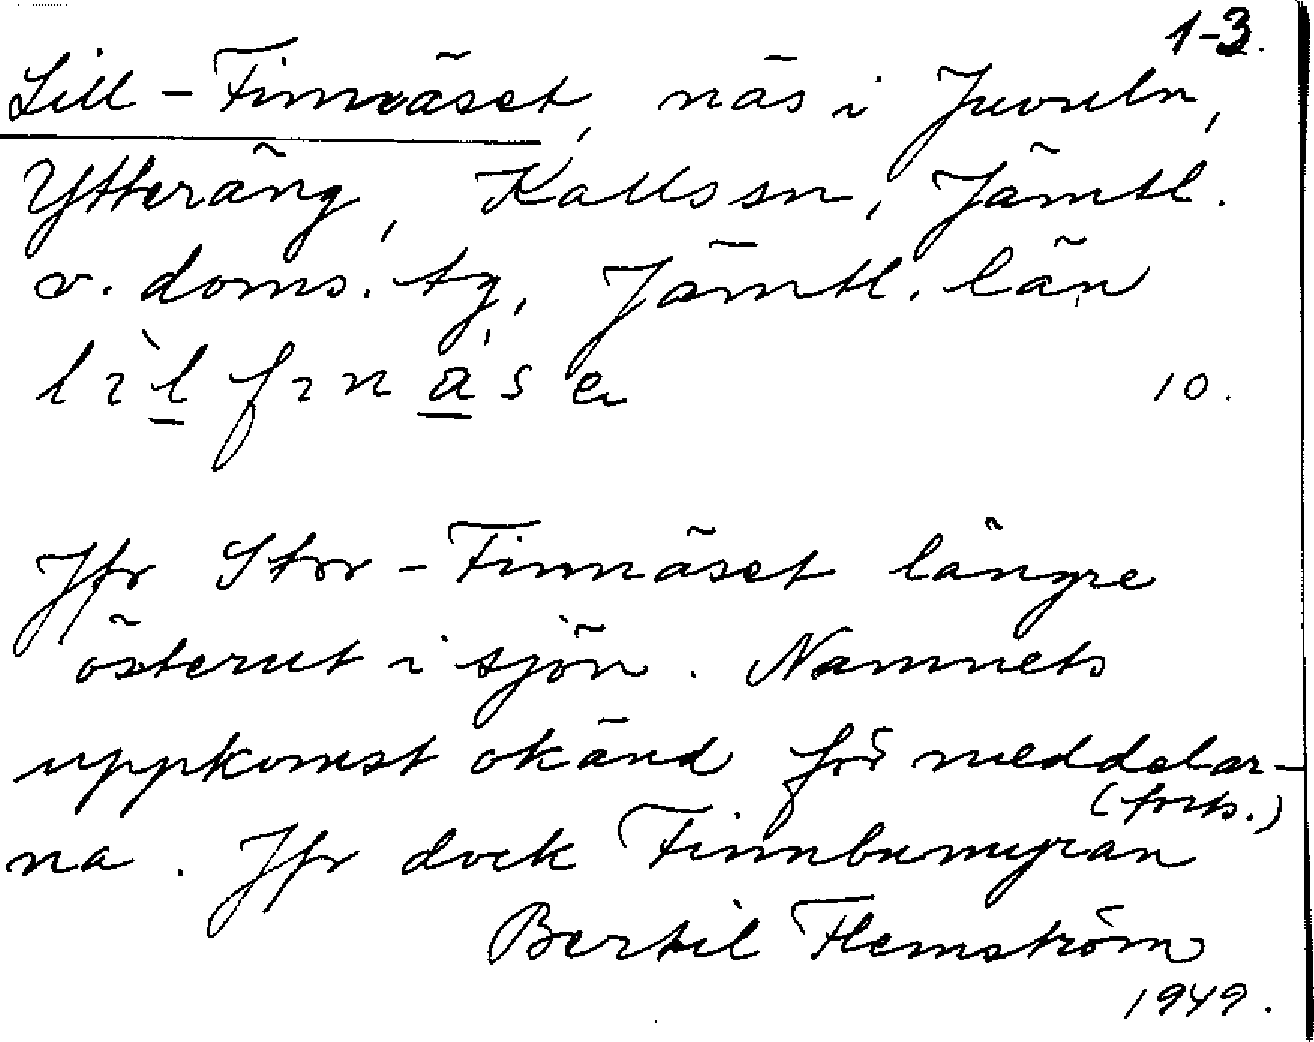 1-3.
Lill-Finnäset, näs i Juvuln,
Ytteräng, Kallssn, Jämtl.
v. doms. tg, Jämtl. län
10.
Jfr Stor-Finnäset längre
österut i sjön. Namnets
uppkomst okänd för meddelar-
na. Jfr dock Finnbumyran
(forts.)
Bertil Flemström
1949.